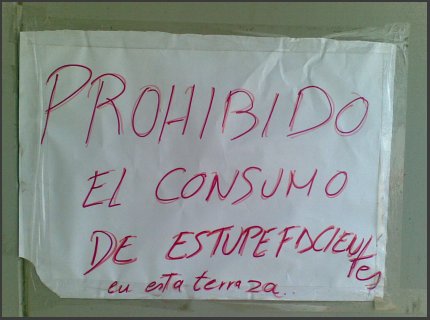 PROHIBIDO
EL CONSUMO
DE ESTUPEFACIENTES
en esta terraza..